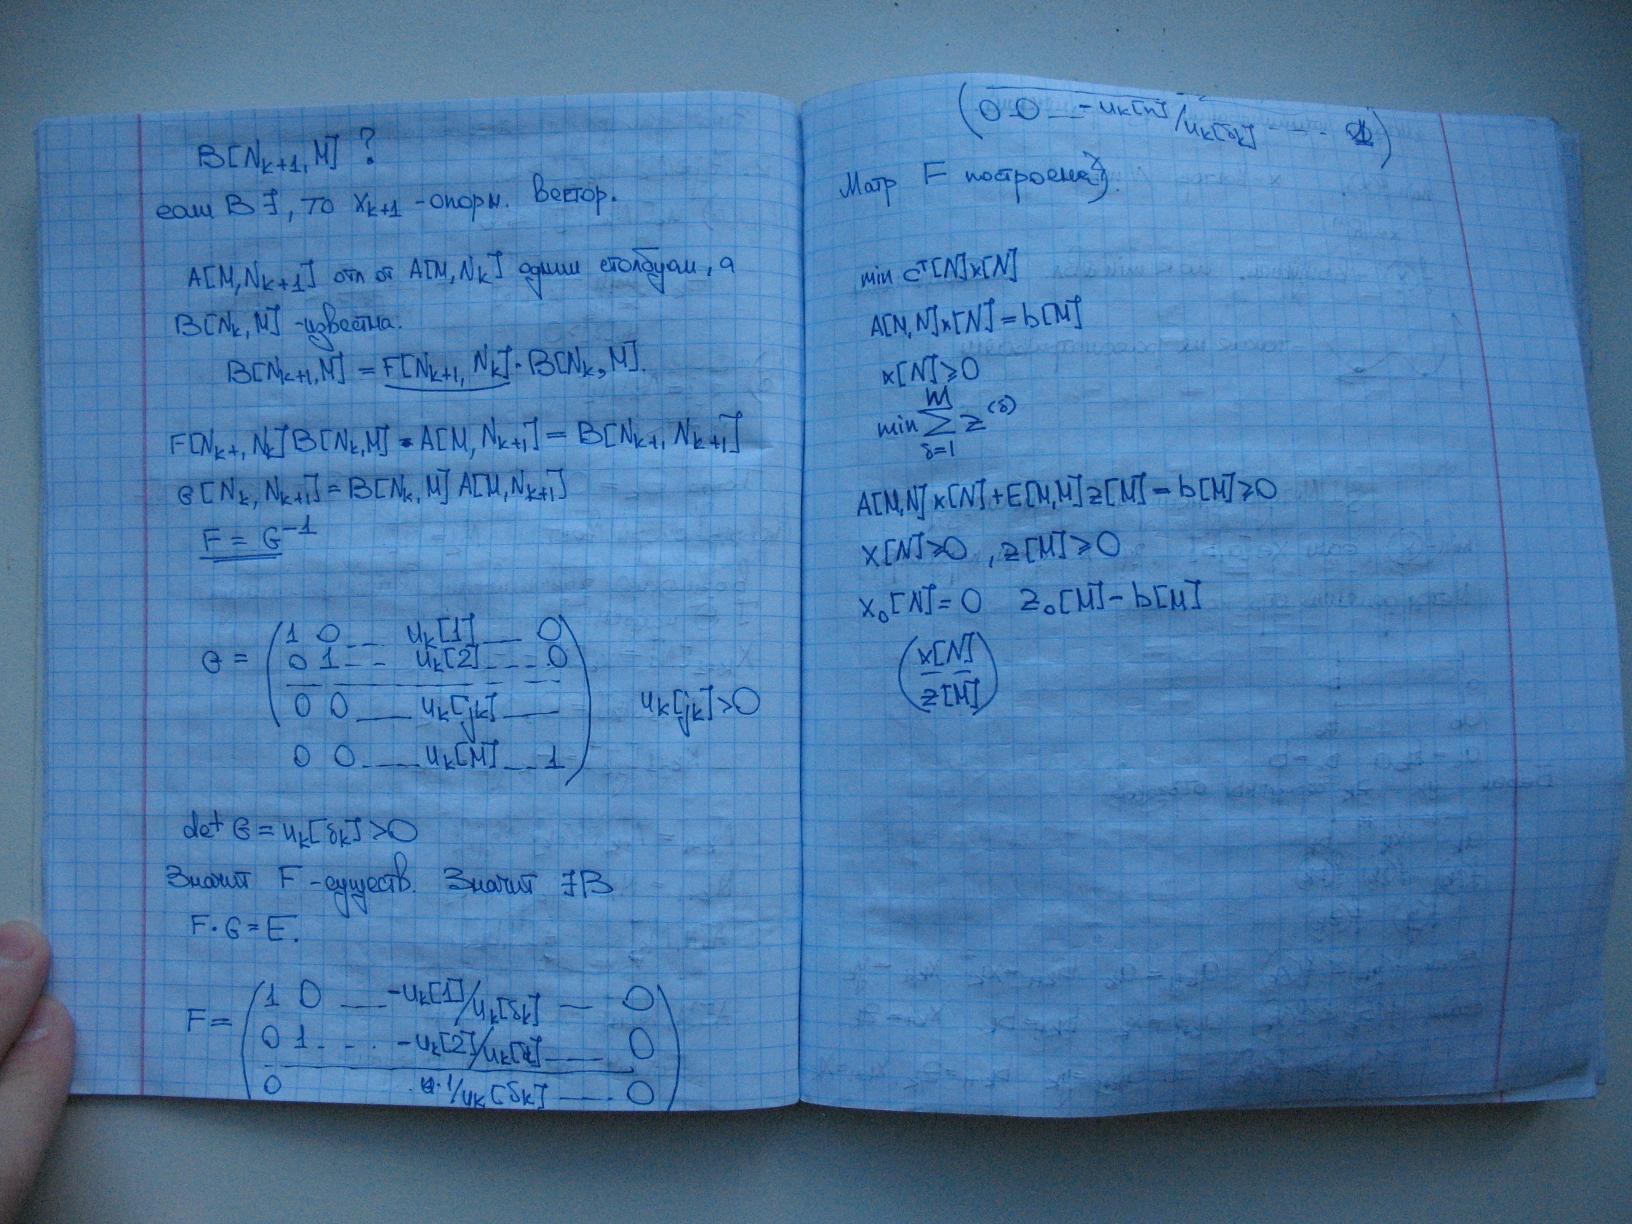 B[N_{k+1}, M] ?
если B ∃, то x_{k+1} - опорн. вектор.
A[M, N_{k+1}] отл от A[M, N_k] одним столбцом, а
B[N_k, M] - известна.
B[N_{k+1}, M] = F[N_{k+1}, N_k] · B[N_k, M].
F[N_{k+1}, N_k] B[N_k, M] · A[M, N_{k+1}] = B[N_{k+1}, N_{k+1}]
G[N_k, N_{k+1}] = B[N_k, M] A[M, N_{k+1}]
F = G^{-1}
1 0 __ u_k[1] __ 0
G = 0 1 -- u_k[2] --- 0
0 0 __ u_k[j_k] __ u_k[j_k] > 0
0 0 ---- u_k[M] -- 1
det G = u_k[δ_k] > 0
Значит F - существ. Значит ∃ B
F · G = E.
1 0 __ -u_k[1]/u_k[δ_k] __ 0
F = 0 1 ... -u_k[2]/u_k[δ] __ 0
0 1/u_k[δ_k] __ 0
(0 0 -- -u_k[n]/u_k[δ_k] --- 1)
Матр F построена
min c^T[N] x[N]
A[M, N] x[N] = b[M]
x[N] ≥ 0
min ∑_{δ=1}^{M} z^{(δ)}
A[M, N] x[N] + E[M, M] z[M] = b[M] ≥ 0
x[N] ≥ 0, z[M] ≥ 0
x_0[N] = 0 z_0[M] - b[M]
x[N]
z[M]